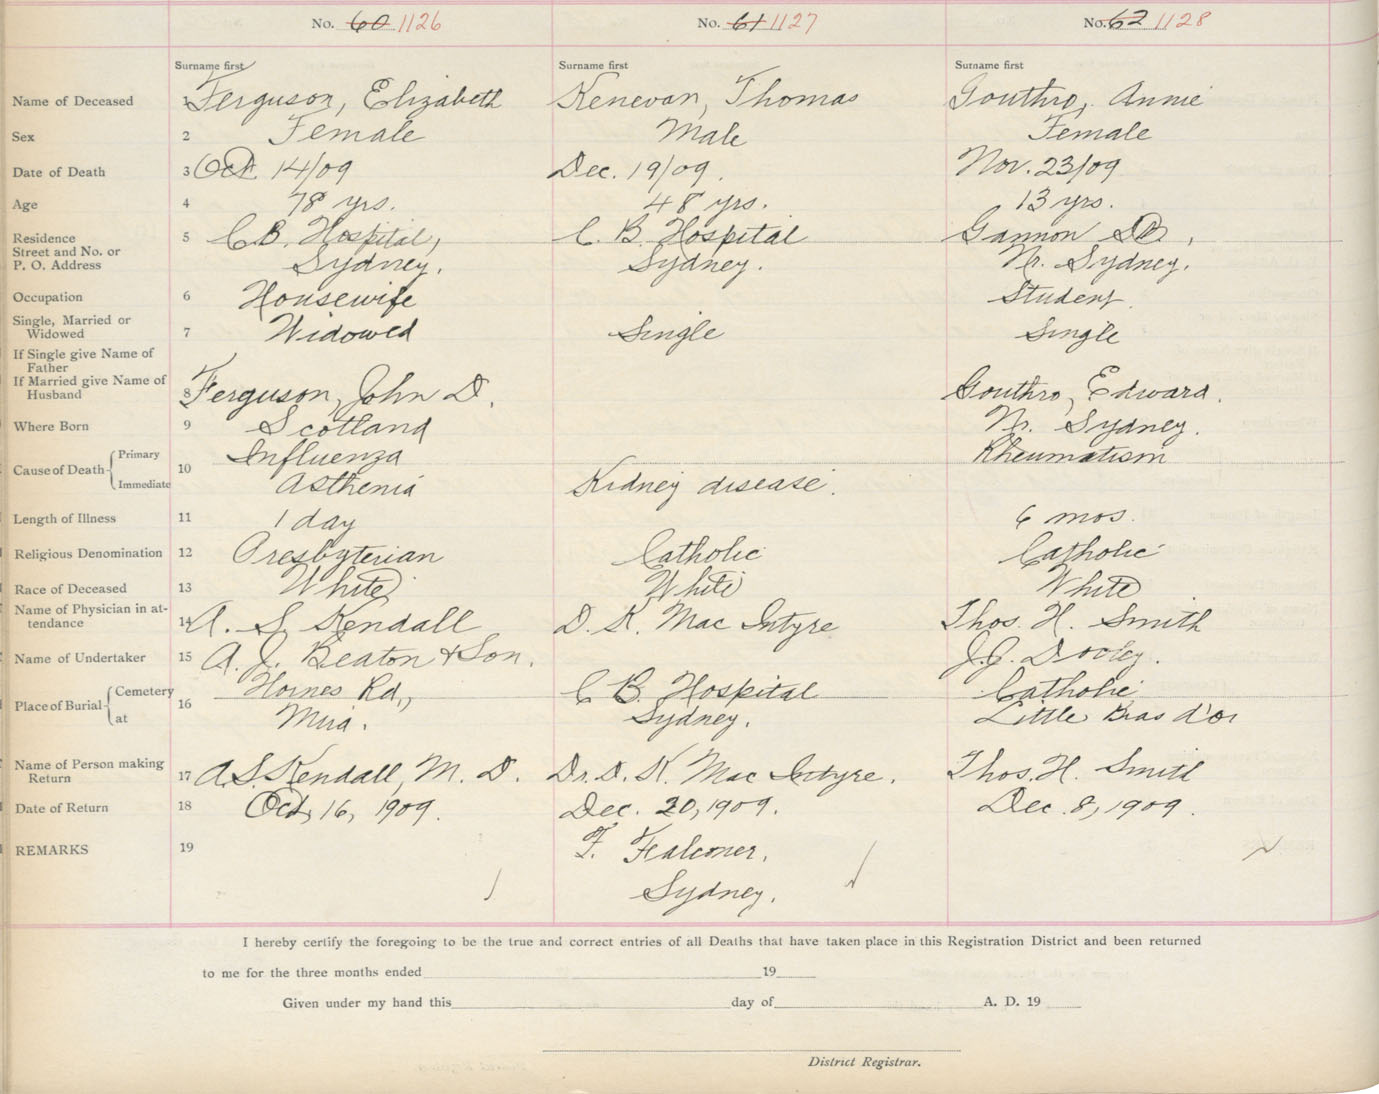 No. 60 1126 No. 61 1127 No. 62 1128
Surname first Surname first Surname first
Name of Deceased 1 Ferguson, Elizabeth Kenevan, Thomas Gouthro, Annie
Sex 2 Female Male Female
Date of Death 3 Oct 14/09 Dec. 19/09. Nov. 23/09
Age 4 78 yrs. 48 yrs. 13 yrs.
Residence 5 C.B. Hospital, C. B. Hospital Gannon Rd,
Street and No. or
P. O. Address Sydney. Sydney. Nr. Sydney.
Occupation 6 Housewife Student
Single, Married or
Widowed 7 Widowed Single Single
If Single give Name of
Father
If Married give Name of
Husband 8 Ferguson, John D. Gouthro, Edward.
Where Born 9 Scotland Nr. Sydney.
Cause of Death 10 Primary Influenza Rheumatism
Immediate Asthenia Kidney disease.
Length of Illness 11 1 day 6 mos.
Religious Denomination 12 Presbyterian Catholic Catholic
Race of Deceased 13 White White White
Name of Physician in at-
tendance 14 A. S. Kendall D. K. Mac Intyre Thos. H. Smith
Name of Undertaker 15 A. J. Beaton & Son. J.J. Dooley.
Place of Burial 16 Cemetery Hornes Rd., C B. Hospital Catholic
at Mira. Sydney. Little Bras d'or
Name of Person making
Return 17 A.S. Kendall, M. D. Dr. D. K. Mac Intyre. Thos. H. Smith
Date of Return 18 Oct, 16, 1909. Dec. 20, 1909. Dec. 8, 1909.
REMARKS 19 F. Falconer,
Sydney.
I hereby certify the foregoing to be the true and correct entries of all Deaths that have taken place in this Registration District and been returned
to me for the three months ended 19
Given under my hand this day of A. D. 19
District Registrar.